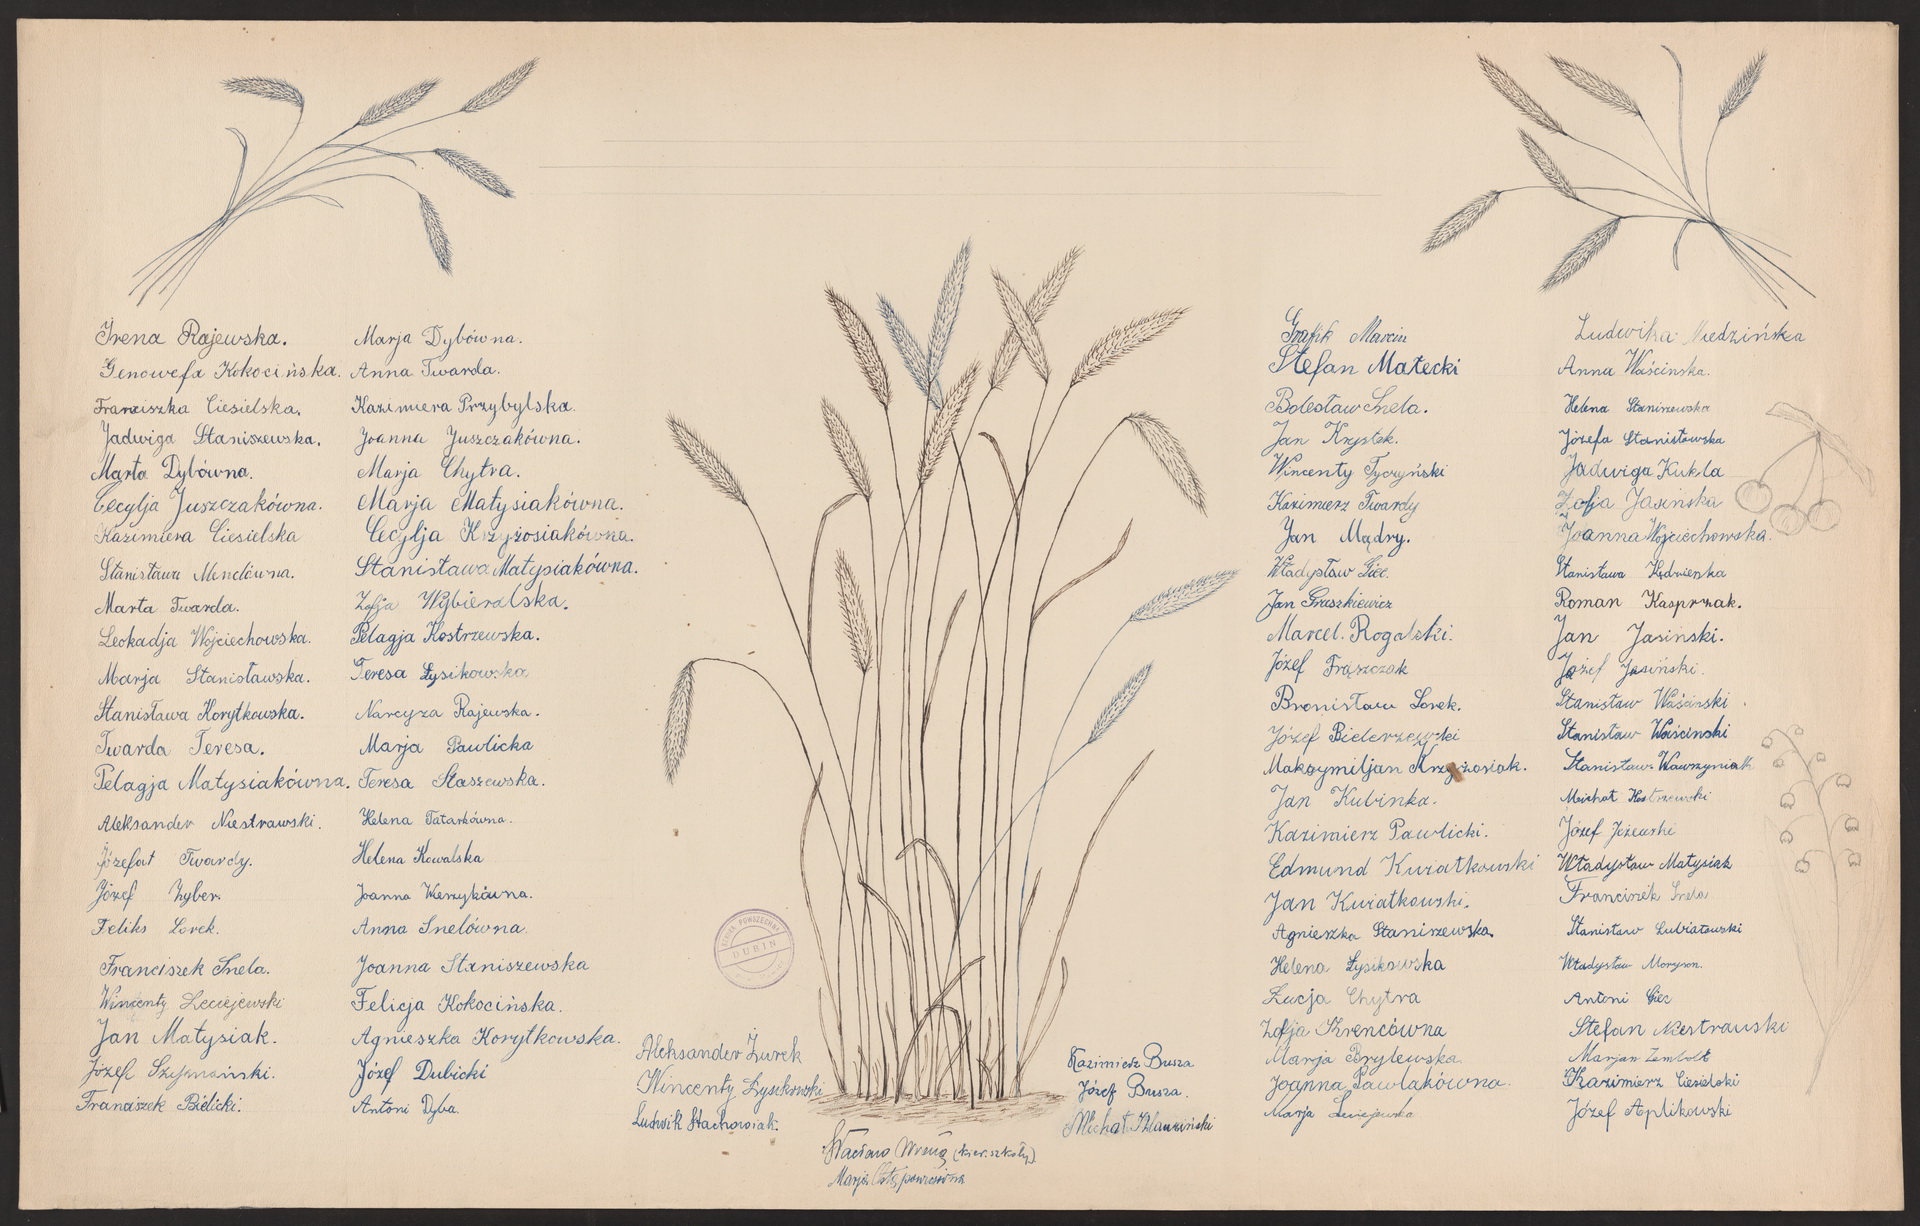 Irena Rajewska.
Genowefa Kokocińska.
Franciszka Ciesielska.
Jadwiga Staniszewska.
Marta Dybówna.
Cecylja Juszczakówna.
Kazimiera Ciesielska
Stanisława Menclówna.
Marta Twarda.
Leokadja Wojciechowska.
Marja Stanisławska.
Stanisława Korytkowska.
Twarda Teresa.
Pelagja Matysiakówna.
Aleksander Niestrawski.
Józefat Twardy.
Józef Zyber.
Feliks Lorek.
Franciszek Snela.
Wincenty Leciejewski
Jan Matysiak.
Józef Szymański.
Franciszek Bielicki.
Marja Dybówna.
Anna Twarda.
Kazimiera Przybylska.
Joanna Juszczakówna.
Marja Chytra.
Marja Matysiakówna.
Cecylja Krzyżosiakówna.
Stanisława Matysiakówna.
Zofja Wybieralska.
Pelagja Kostrzewska.
Teresa Łysikowska
Narcyza Rajewska.
Marja Pawlicka
Teresa Staszewska.
Helena Tatarkówna.
Helena Kowalska
Joanna Wenzykówna.
Anna Snelówna.
Joanna Staniszewska
Felicja Kokocińska.
Agnieszka Korytkowska.
Józef Dubicki
Antoni Dyba.
Aleksander Żurek
Wincenty Łysikowski
Ludwik Stachowiak.
SZKOŁA POWSZECHNA
DUBIN
Wacław (kier. szkoły)
Marja
Kazimierz Busza
Józef Busza.
Michał
Grafik Marcin
Stefan Małecki
Bolesław Snela.
Jan Krystek.
Wincenty Tyczyński
Kazimierz Twardy
Jan Mądry.
Władysław Giec.
Jan Gruszkiewicz
Marcel. Rogalski.
Józef Frąszczak
Bronisław Lorek.
Józef Bielerzewski
Maksymiljan Krzyżosiak.
Jan Kubinka.
Kazimierz Pawlicki.
Edmund Kwiatkowski
Jan Kwiatkowski.
Agnieszka Staniszewska.
Helena Łysikowska
Łucja Chytra
Zofja Krencówna
Marja Brylewska.
Joanna Pawlakówna.
Marja
Ludwika Niedzińska
Anna Waścinska.
Helena Staniszewska
Józefa Stanisławska
Jadwiga Kukla
Zofja Jasińska
Joanna Wojciechowska.
Stanisława Kędzierska
Roman Kasprzak.
Jan Jasiński.
Józef Jasiński.
Stanisław Waścinski
Stanisław Waścinski
Stanisław Wawrzyniak
Michał Kostrzewski
Józef Jeżewski
Władysław Matysiak
Franciszek Snela
Stanisław Lubiatowski
Władysław
Antoni Giec
Stefan Niestrawski
Marjan Zembolt
Kazimierz Ciesielski
Józef Aplikowski